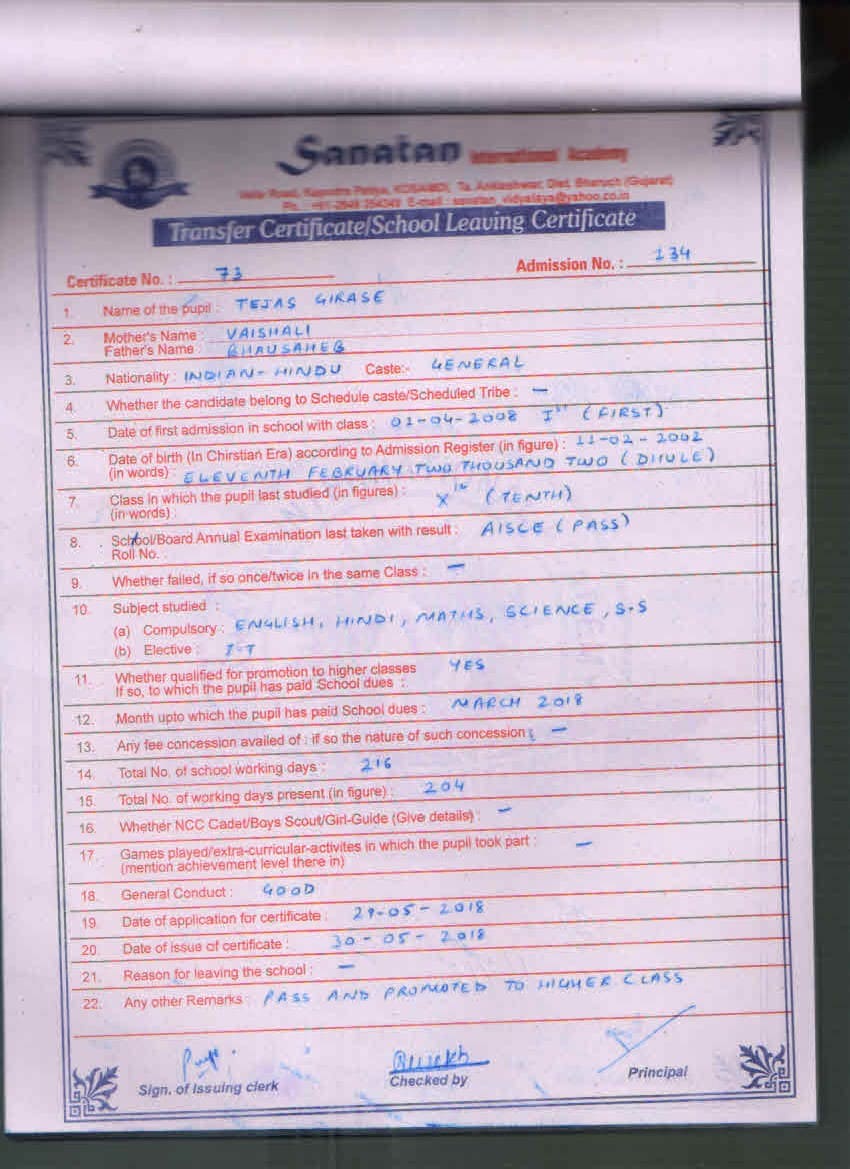 Sanatan International Academy
Valia Road, KOSAMDI, Ta. Ankleshwar, Dist. Bharuch (Gujarat)
E-mail : sanatan_vidyalaya@yahoo.co.in
Transfer Certificate/School Leaving Certificate
Certificate No. : 73
Admission No. : 134
1. Name of the pupil : TEJAS GIRASE
2. Mother's Name : VAISHALI
Father's Name : BHAUSAHEB
3. Nationality : INDIAN-HINDU Caste:- GENERAL
4. Whether the candidate belong to Schedule caste/Scheduled Tribe : —
5. Date of first admission in school with class : 01-04-2008 Ist (FIRST)
6. Date of birth (In Chirstian Era) according to Admission Register (in figure) : 11-02-2002
(in words) : ELEVENTH FEBRUARY TWO THOUSAND TWO (DHULE)
7. Class in which the pupil last studied (in figures) : Xth (TENTH)
(in words) :
8. School/Board Annual Examination last taken with result : AISCE (PASS)
Roll No. :
9. Whether failed, if so once/twice in the same Class : —
10. Subject studied :
(a) Compulsory : ENGLISH, HINDI, MATHS, SCIENCE, S.S
(b) Elective : I.T
11. Whether qualified for promotion to higher classes YES
If so, to which the pupil has paid School dues :
12. Month upto which the pupil has paid School dues : MARCH 2018
13. Any fee concession availed of : if so the nature of such concession : —
14. Total No. of school working days : 216
15. Total No. of working days present (in figure) : 204
16. Whether NCC Cadet/Boys Scout/Girl-Guide (Give details) : —
17. Games played/extra-curricular-activites in which the pupil took part : —
(mention achievement level there in)
18. General Conduct : GOOD
19. Date of application for certificate : 29-05-2018
20. Date of issue of certificate : 30-05-2018
21. Reason for leaving the school : —
22. Any other Remarks : PASS AND PROMOTED TO HIGHER CLASS
Sign. of Issuing clerk
Checked by
Principal